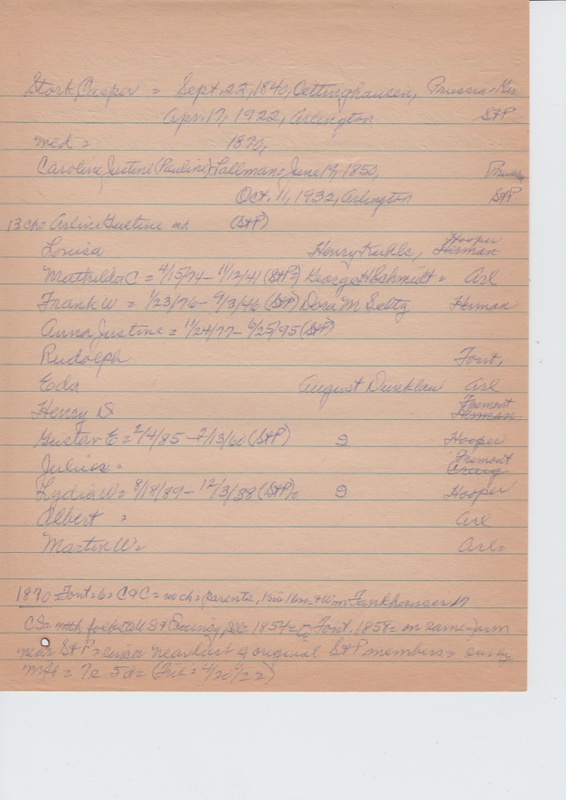 Stork, Casper = Sept. 22, 1840, Oettinghausen, Prussia-Ger
Apr. 17, 1922, Arlington St P
med = 1870,
Caroline Justine (Pauline) Hallmann, June 19, 1850, Prussia
Oct. 11, 1932, Arlington St P
13 ch = Arline Gustine md (St P)
Louisa Henry Kuhls, Hooper Herman
Mathilda C = 4/15/74 - 11/12/41 (St P) George Hbshmidt = Arl
Frank W = 1/23/76 - 9/3/46 (St P) Dora M Seltz Herman
Anna Justine = 11/24/77 - 6/25/95 (St P)
Rudolph Font.
Eda August Dunklau Arl
Henry D Fremont Herman
Gustav E = 2/4/85 - 2/13/60 (St P) S Hooper
Julius = Fremont Craig
Lydia W = 8/18/89 - 12/3/38 (St P) = S Hooper
Albert = Arl
Martin W = Arl =
1870 = Font = b = C & C = no ch = parents, 1 sis 1 bro = & Wm Fankhauser 17
CS = with folks to US & 1854 = Font, 1858 = on same farm
near St P = original St P members =
= 7s 5d = (Trib = 4/20/22)